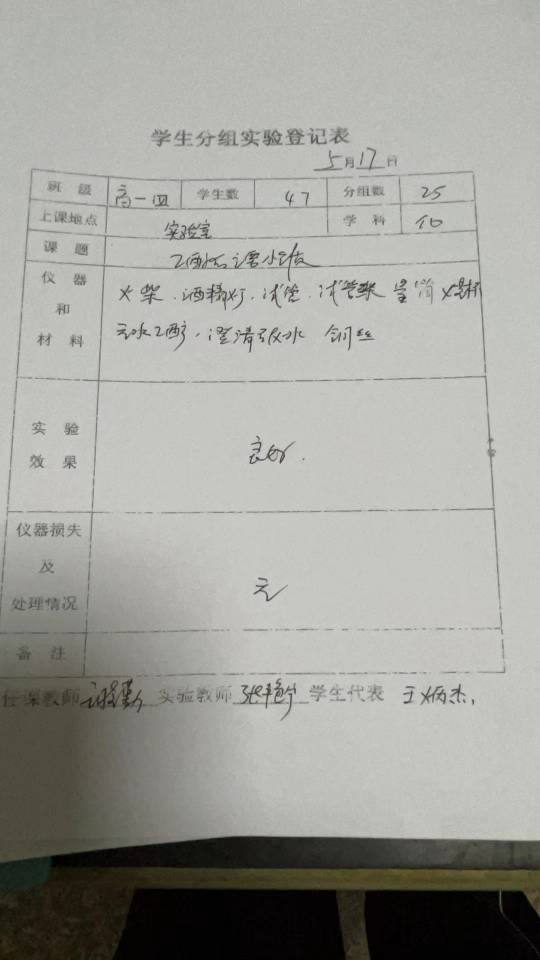 学生分组实验登记表
5月17日
班 级 高一四 学生数 47 分组数 25
上课地点 实验室 学 科 化
课 题 乙醇的主要性质
仪 器 火柴、酒精灯、试管、试管架 量筒
和
材 料 无水乙醇、澄清石灰水 铜丝
实 验
效 果 良好.
仪器损失
及
处理情况 无
备 注
任课教师 实验教师 学生代表 王炳杰